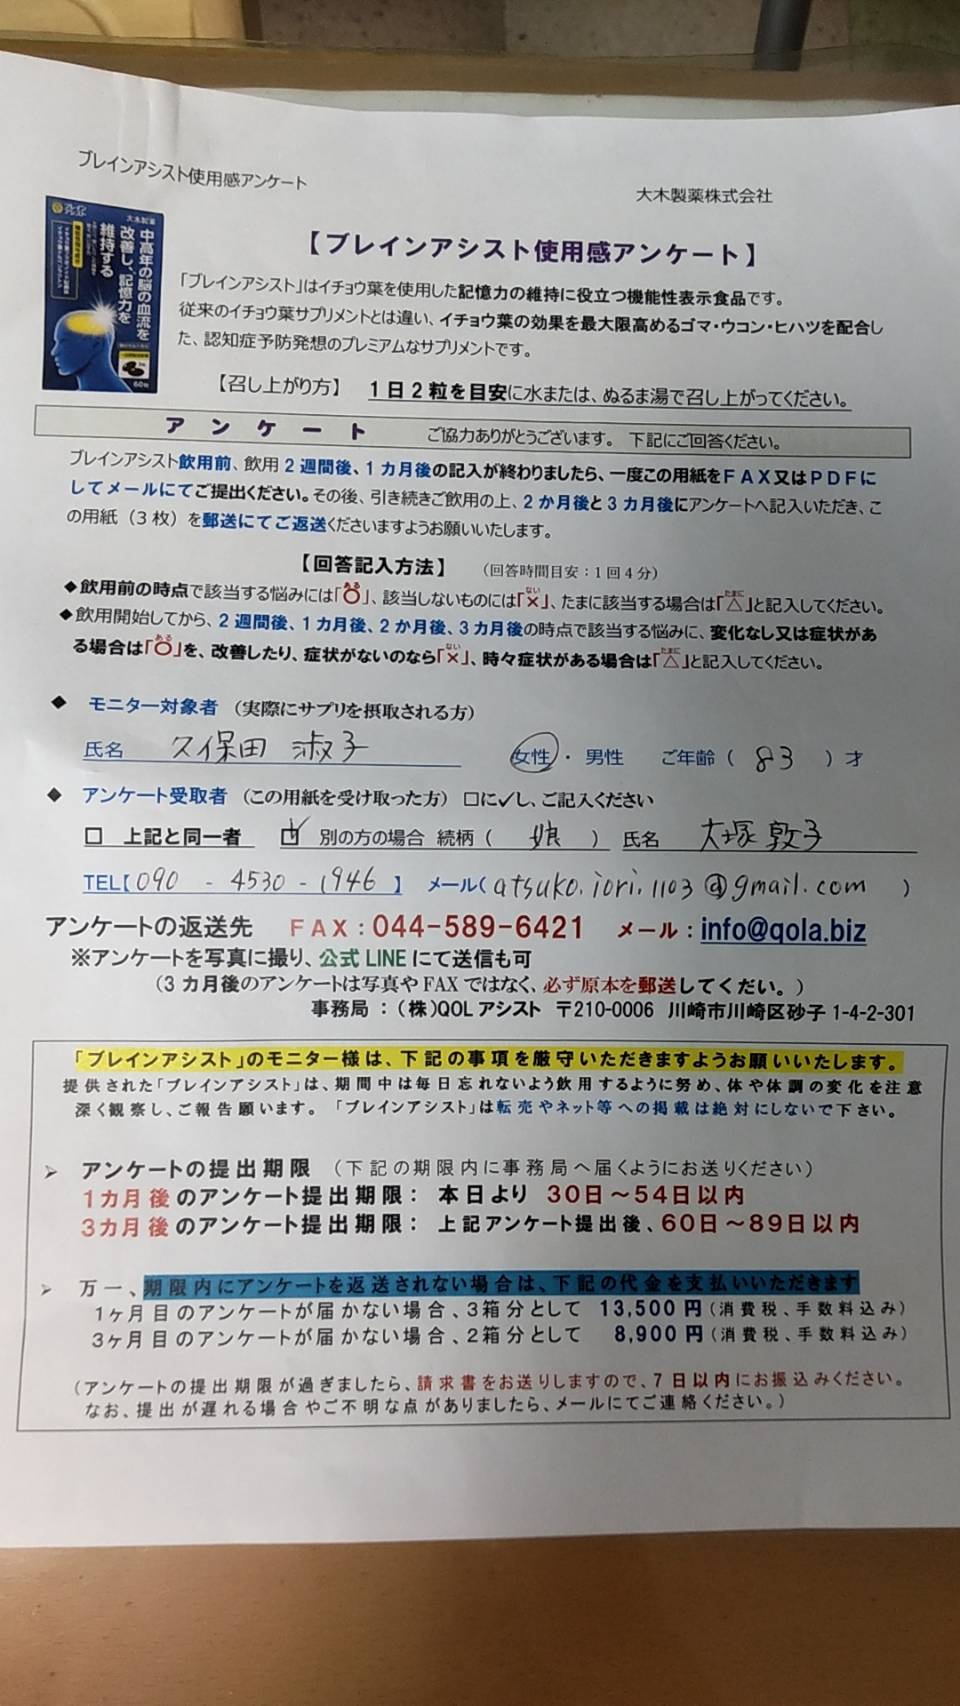 ブレインアシスト使用感アンケート
大木製薬株式会社
大木製薬
中高年の脳の血流を
改善し、記憶力を
維持する
60粒
【ブレインアシスト使用感アンケート】
「ブレインアシスト」はイチョウ葉を使用した記憶力の維持に役立つ機能性表示食品です。
従来のイチョウ葉サプリメントとは違い、イチョウ葉の効果を最大限高めるゴマ・ウコン・ヒハツを配合し
た、認知症予防発想のプレミアムなサプリメントです。
【召し上がり方】 1日2粒を目安に水または、ぬるま湯で召し上がってください。
アンケート ご協力ありがとうございます。 下記にご回答ください。
ブレインアシスト飲用前、飲用2週間後、1カ月後の記入が終わりましたら、一度この用紙をFAX又はPDFに
してメールにてご提出ください。その後、引き続きご飲用の上、2か月後と3カ月後にアンケートへ記入いただき、こ
の用紙（3枚）を郵送にてご返送くださいますようお願いいたします。
【回答記入方法】 （回答時間目安：1回4分）
◆飲用前の時点で該当する悩みには「〇」、該当しないものには「×」、たまに該当する場合は「△」と記入してください。
◆飲用開始してから、2週間後、1カ月後、2か月後、3カ月後の時点で該当する悩みに、変化なし又は症状があ
る場合は「〇」を、改善したり、症状がないのなら「×」、時々症状がある場合は「△」と記入してください。
◆ モニター対象者 （実際にサプリを摂取される方）
氏名 久保田 淑子 女性・男性 ご年齢（ 83 ）才
◆ アンケート受取者 （この用紙を受け取った方） □に✓し、ご記入ください
□ 上記と同一者 ☑ 別の方の場合 続柄（ 娘 ） 氏名 大塚敦子
TEL【090 - 4530 - 1946 】 メール（atsuko.iori.1103@gmail.com ）
アンケートの返送先 FAX：044-589-6421 メール：info@qola.biz
※アンケートを写真に撮り、公式LINEにて送信も可
（3カ月後のアンケートは写真やFAXではなく、必ず原本を郵送してくだい。）
事務局 ：（株）QOLアシスト 〒210-0006 川崎市川崎区砂子1-4-2-301
「ブレインアシスト」のモニター様は、下記の事項を厳守いただきますようお願いいたします。
提供された「ブレインアシスト」は、期間中は毎日忘れないよう飲用するように努め、体や体調の変化を注意
深く観察し、ご報告願います。 「ブレインアシスト」は転売やネット等への掲載は絶対にしないで下さい。
➢ アンケートの提出期限 （下記の期限内に事務局へ届くようにお送りください）
1カ月後のアンケート提出期限： 本日より 30日～54日以内
3カ月後のアンケート提出期限： 上記アンケート提出後、60日～89日以内
➢ 万一、期限内にアンケートを返送されない場合は、下記の代金を支払いいただきます
1ヶ月目のアンケートが届かない場合、3箱分として 13,500円（消費税、手数料込み）
3ヶ月目のアンケートが届かない場合、2箱分として 8,900円（消費税、手数料込み）
（アンケートの提出期限が過ぎましたら、請求書をお送りしますので、7日以内にお振込みください。
なお、提出が遅れる場合やご不明な点がありましたら、メールにてご連絡ください。）